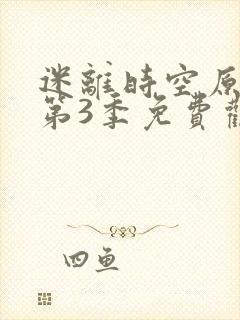 迷離時空原
第3季免費觀
四鱼